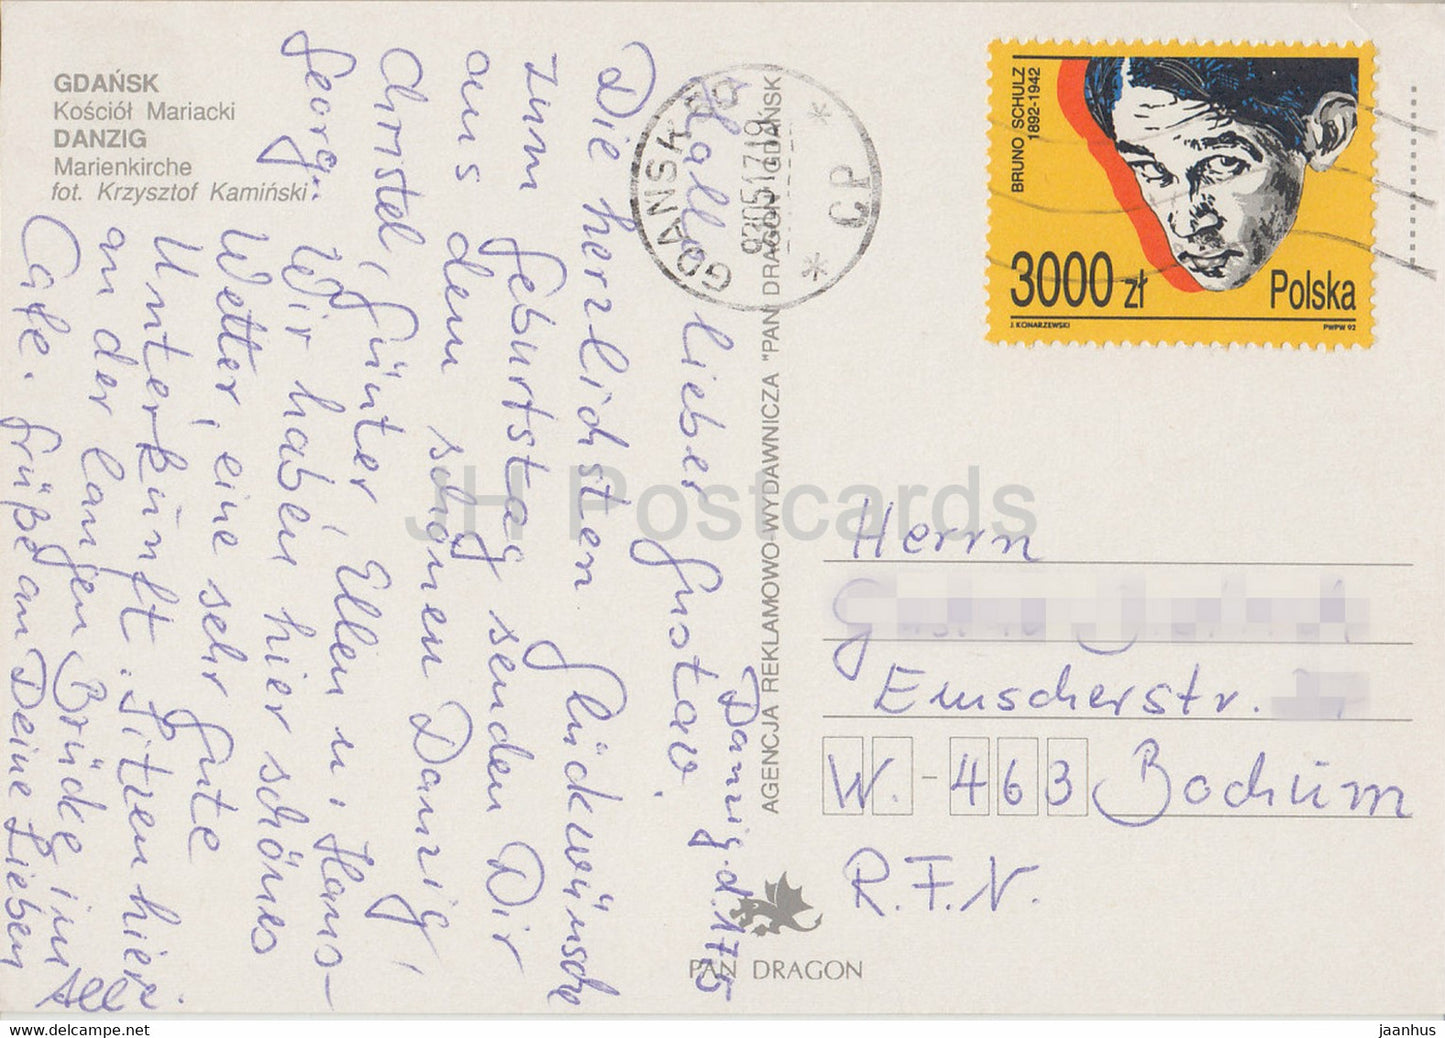 GDAŃSK
Kościół Mariacki
DANZIG
Marienkirche
fot. Krzysztof Kamiński
Danzig. d. 17.5
Hallo lieber Gustav.
Die herzlichsten Glückwünsche
zum Geburtstag senden Dir
aus dem schönen Danzig,
Christel, Günter, Ellen u. Hans-
Georg.
Wir haben hier schönes
Wetter, eine sehr gute
Unterkunft. Sitzen hier
an der langen Brücke im
Cafe. Grüße an Deine Lieben
All
AGENCJA REKLAMOWO-WYDAWNICZA "PAN DRAGON" GDAŃSK
PAN DRAGON
GDAŃSK
CP
BRUNO SCHULZ
1892-1942
3000 zł
Polska
J. KONARZEWSKI
PWPW 92
Herrn
Emscherstr.
W. - 463 Bochum
R.F.N.
JH Postcards
www.jhpostcard.com
jaanhus